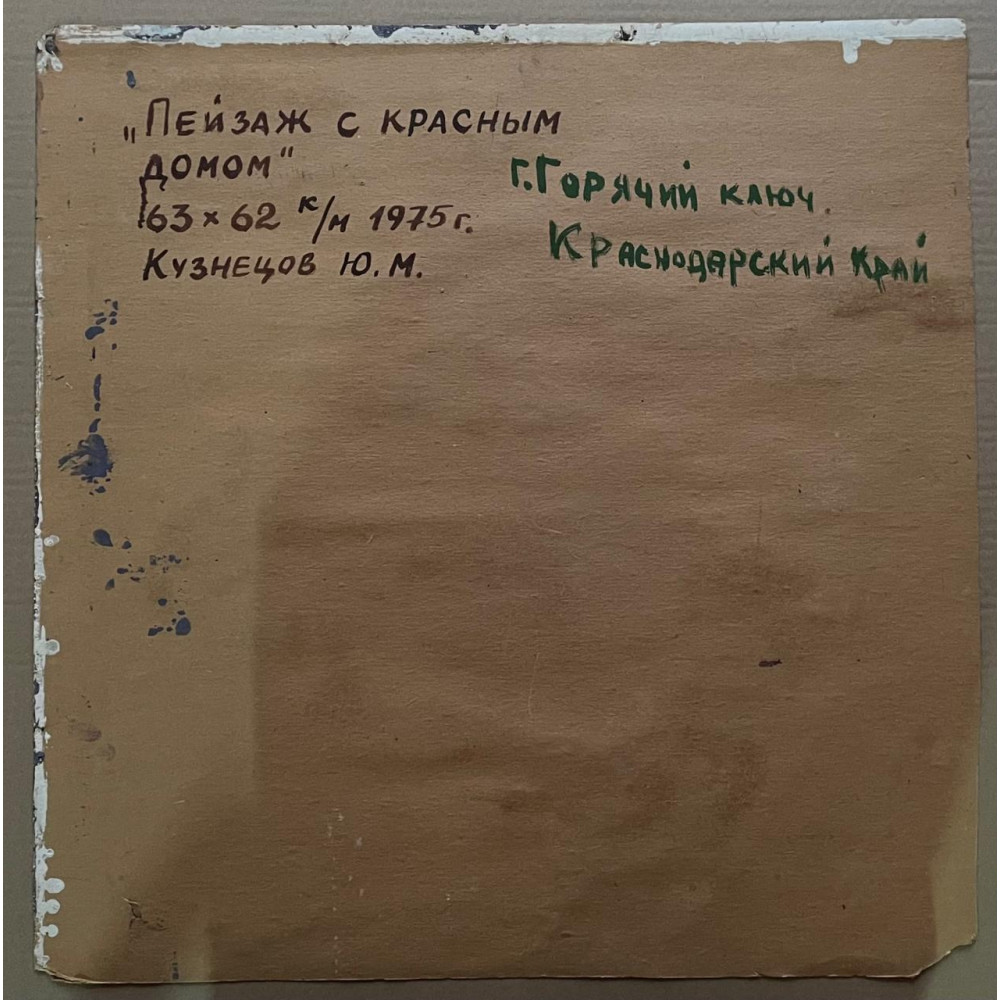 „Пейзаж с красным
домом"
63 × 62 к/м 1975 г.
Кузнецов Ю.М.
г. Горячий ключ.
Краснодарский Край